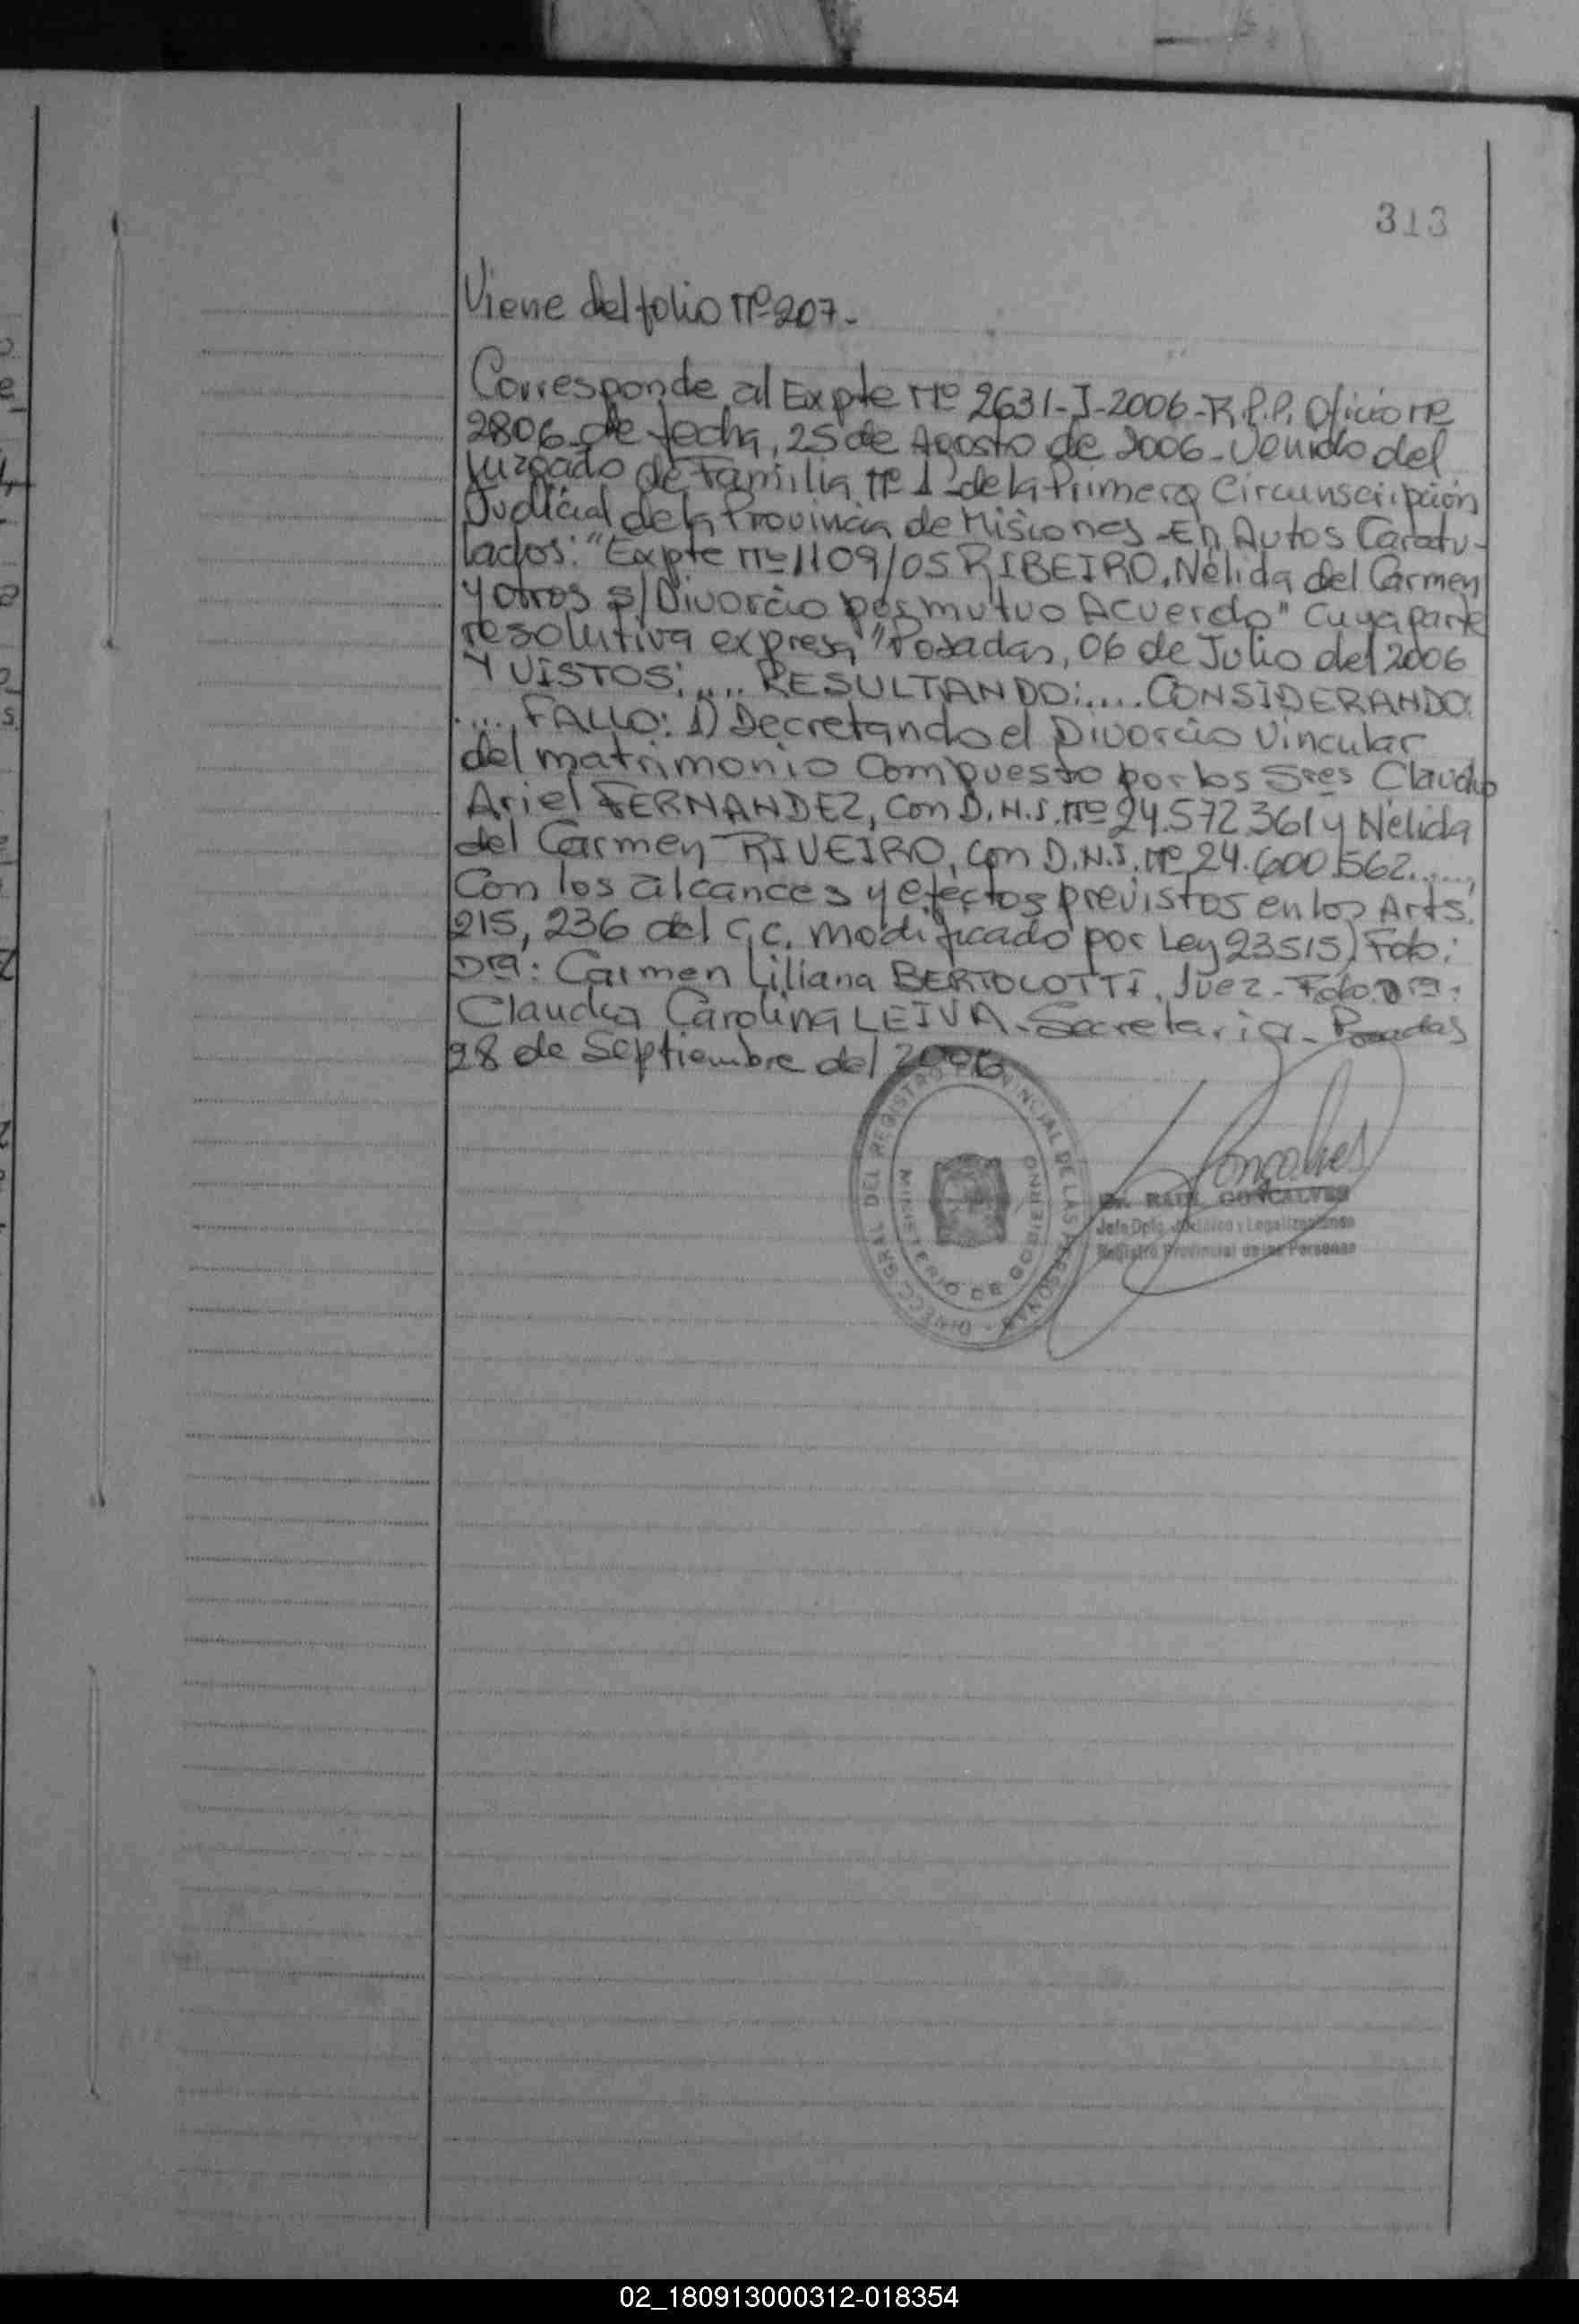 313
Viene del folio Nº 207.-
Corresponde al Expte Nº 2631-J-2006-R.P.P. Oficio Nº
2806 de fecha, 25 de Agosto de 2006 - Venido del
Juzgado de Familia Nº 1 de la Primera Circunscripción
Judicial de la Provincia de Misiones - En Autos Caratu-
lados: "Expte Nº 1109/05 RIBEIRO, Nélida del Carmen
y otros s/ Divorcio por mutuo Acuerdo" Cuya parte
resolutiva expresa "Posadas, 06 de Julio del 2006
Y VISTOS: .... RESULTANDO: .... CONSIDERANDO:
.... FALLO: 1) Decretando el Divorcio Vincular
del matrimonio Compuesto por los Sres Claudio
Ariel FERNANDEZ, con D.N.I. Nº 24.572.361 y Nélida
del Carmen RIVEIRO, con D.N.I. Nº 24.600.562.....,
Con los alcances y efectos previstos en los Arts.
215, 236 del C.C. modificado por Ley 23515) Fdo:
Dra: Carmen Liliana BERTOLOTTI, Juez - Fdo. Dra:
Claudia Carolina LEIVA - Secretaria - Posadas
28 de Septiembre del 2006
DIRECC. GRAL DEL REGISTRO PROVINCIAL DE LAS PERSONAS -
MINISTERIO DE GOBIERNO
Gonçalves
Dr. RAUL GONÇALVES
Jefe Dpto. Jurídico y Legalizaciones
Registro Provincial de las Personas
02_180913000312-018354